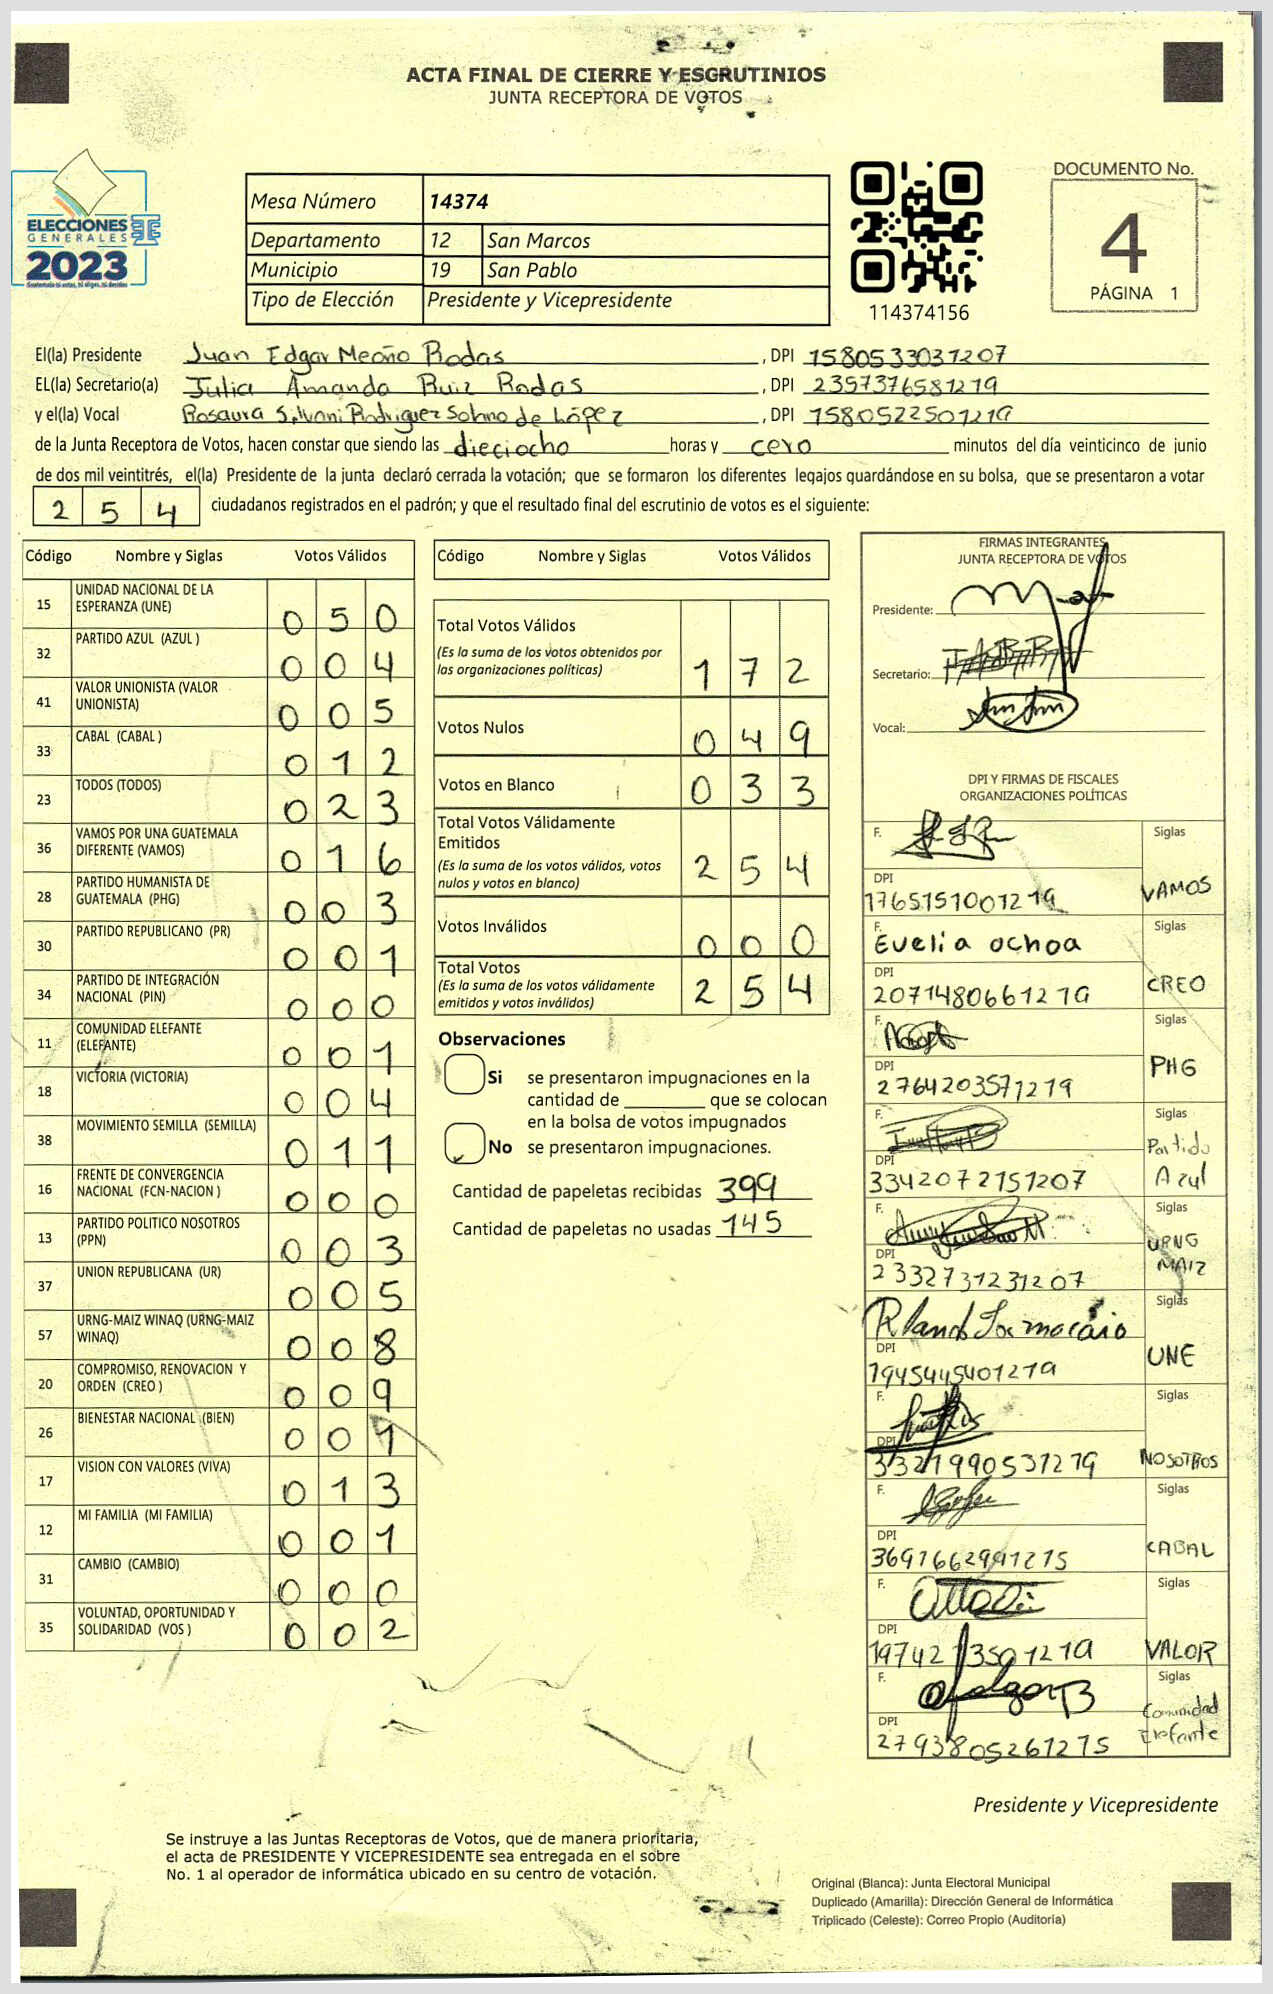 ACTA FINAL DE CIERRE Y ESGRUTINIOS
JUNTA RECEPTORA DE VOTOS
ELECCIONES
GENERALES
2023
Mesa Número 14374
Departamento 12 San Marcos
Municipio 19 San Pablo
Tipo de Elección Presidente y Vicepresidente
114374156
DOCUMENTO No.
4
PÁGINA 1
El(la) Presidente Juan Edgar Meoño Rodas , DPI 1580533031207
EL(la) Secretario(a) Julia Amanda Ruiz Rodas , DPI 2357376581219
y el(la) Vocal Rosaura Silvani Rodriguez Solano de López , DPI 1580522501219
de la Junta Receptora de Votos, hacen constar que siendo las dieciocho horas y cero minutos del día veinticinco de junio
de dos mil veintitrés, el(la) Presidente de la junta declaró cerrada la votación; que se formaron los diferentes legajos guardándose en su bolsa, que se presentaron a votar
254 ciudadanos registrados en el padrón; y que el resultado final del escrutinio de votos es el siguiente:
Código Nombre y Siglas Votos Válidos
15 UNIDAD NACIONAL DE LA ESPERANZA (UNE) 050
32 PARTIDO AZUL (AZUL ) 004
41 VALOR UNIONISTA (VALOR UNIONISTA) 005
33 CABAL (CABAL ) 012
23 TODOS (TODOS) 023
36 VAMOS POR UNA GUATEMALA DIFERENTE (VAMOS) 016
28 PARTIDO HUMANISTA DE GUATEMALA (PHG) 003
30 PARTIDO REPUBLICANO (PR) 001
34 PARTIDO DE INTEGRACIÓN NACIONAL (PIN) 000
11 COMUNIDAD ELEFANTE (ELEFANTE) 001
18 VICTORIA (VICTORIA) 004
38 MOVIMIENTO SEMILLA (SEMILLA) 011
16 FRENTE DE CONVERGENCIA NACIONAL (FCN-NACION ) 000
13 PARTIDO POLITICO NOSOTROS (PPN) 003
37 UNION REPUBLICANA (UR) 005
57 URNG-MAIZ WINAQ (URNG-MAIZ WINAQ) 008
20 COMPROMISO, RENOVACION Y ORDEN (CREO ) 009
26 BIENESTAR NACIONAL (BIEN) 001
17 VISION CON VALORES (VIVA) 013
12 MI FAMILIA (MI FAMILIA) 001
31 CAMBIO (CAMBIO) 000
35 VOLUNTAD, OPORTUNIDAD Y SOLIDARIDAD (VOS ) 002
Código Nombre y Siglas Votos Válidos
Total Votos Válidos 172
(Es la suma de los votos obtenidos por
las organizaciones políticas)
Votos Nulos 049
Votos en Blanco 033
Total Votos Válidamente
Emitidos 254
(Es la suma de los votos válidos, votos
nulos y votos en blanco)
Votos Inválidos 000
Total Votos 254
(Es la suma de los votos válidamente
emitidos y votos inválidos)
Observaciones
Si se presentaron impugnaciones en la
cantidad de ________ que se colocan
en la bolsa de votos impugnados
No se presentaron impugnaciones.
Cantidad de papeletas recibidas 399
Cantidad de papeletas no usadas 145
FIRMAS INTEGRANTES
JUNTA RECEPTORA DE VOTOS
Presidente:
Secretario:
Vocal:
DPI Y FIRMAS DE FISCALES
ORGANIZACIONES POLÍTICAS
F. Siglas
DPI
1765151001219 VAMOS
F. Evelia ochoa Siglas
DPI
2071480661219 CREO
F. Siglas
DPI
2764203571219 PHG
F. Siglas
DPI
3342072151207 Partido Azul
F. Siglas
DPI
2332731231207 URNG MAIZ
F. Siglas
DPI
1945445401219 UNE
F. Siglas
DPI
3321990531219 NOSOTROS
F. Siglas
DPI
3691662991215 CABAL
F. Siglas
DPI
1974213501219 VALOR
F. Siglas
DPI
2793805261215 Comunidad Elefante
Presidente y Vicepresidente
Se instruye a las Juntas Receptoras de Votos, que de manera prioritaria,
el acta de PRESIDENTE Y VICEPRESIDENTE sea entregada en el sobre
No. 1 al operador de informática ubicado en su centro de votación.
Original (Blanca): Junta Electoral Municipal
Duplicado (Amarilla): Dirección General de Informática
Triplicado (Celeste): Correo Propio (Auditoría)